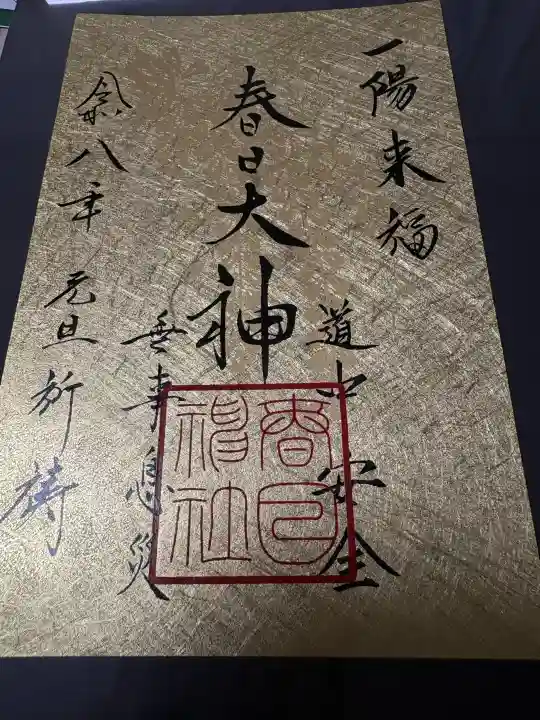 一陽来福
道中安全
春日大神
無事息災
令和八年 元旦祈祷
春日神社